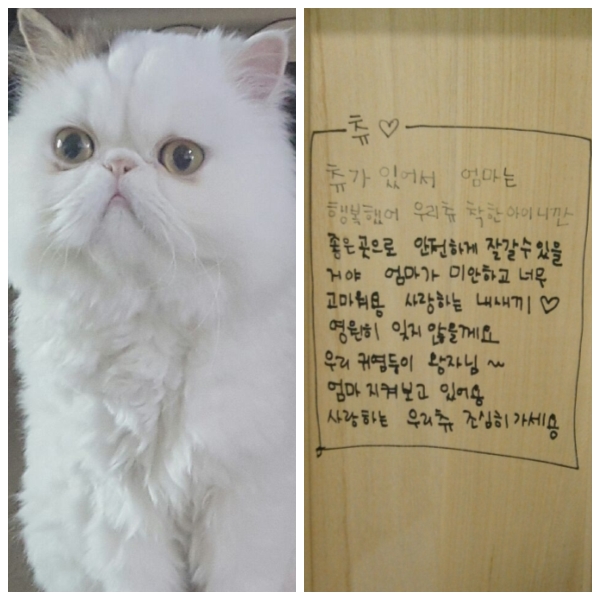 츄♡
츄가 있어서 엄마는
행복했어 우리츄 착한아이니깐
좋은곳으로 안전하게 잘갈수있을
거야 엄마가 미안하고 너무
고마워용 사랑하는 내새끼♡
영원히 잊지않을게요
우리 귀염둥이 왕자님~
엄마 지켜보고 있어용
사랑하는 우리츄 조심히가세용